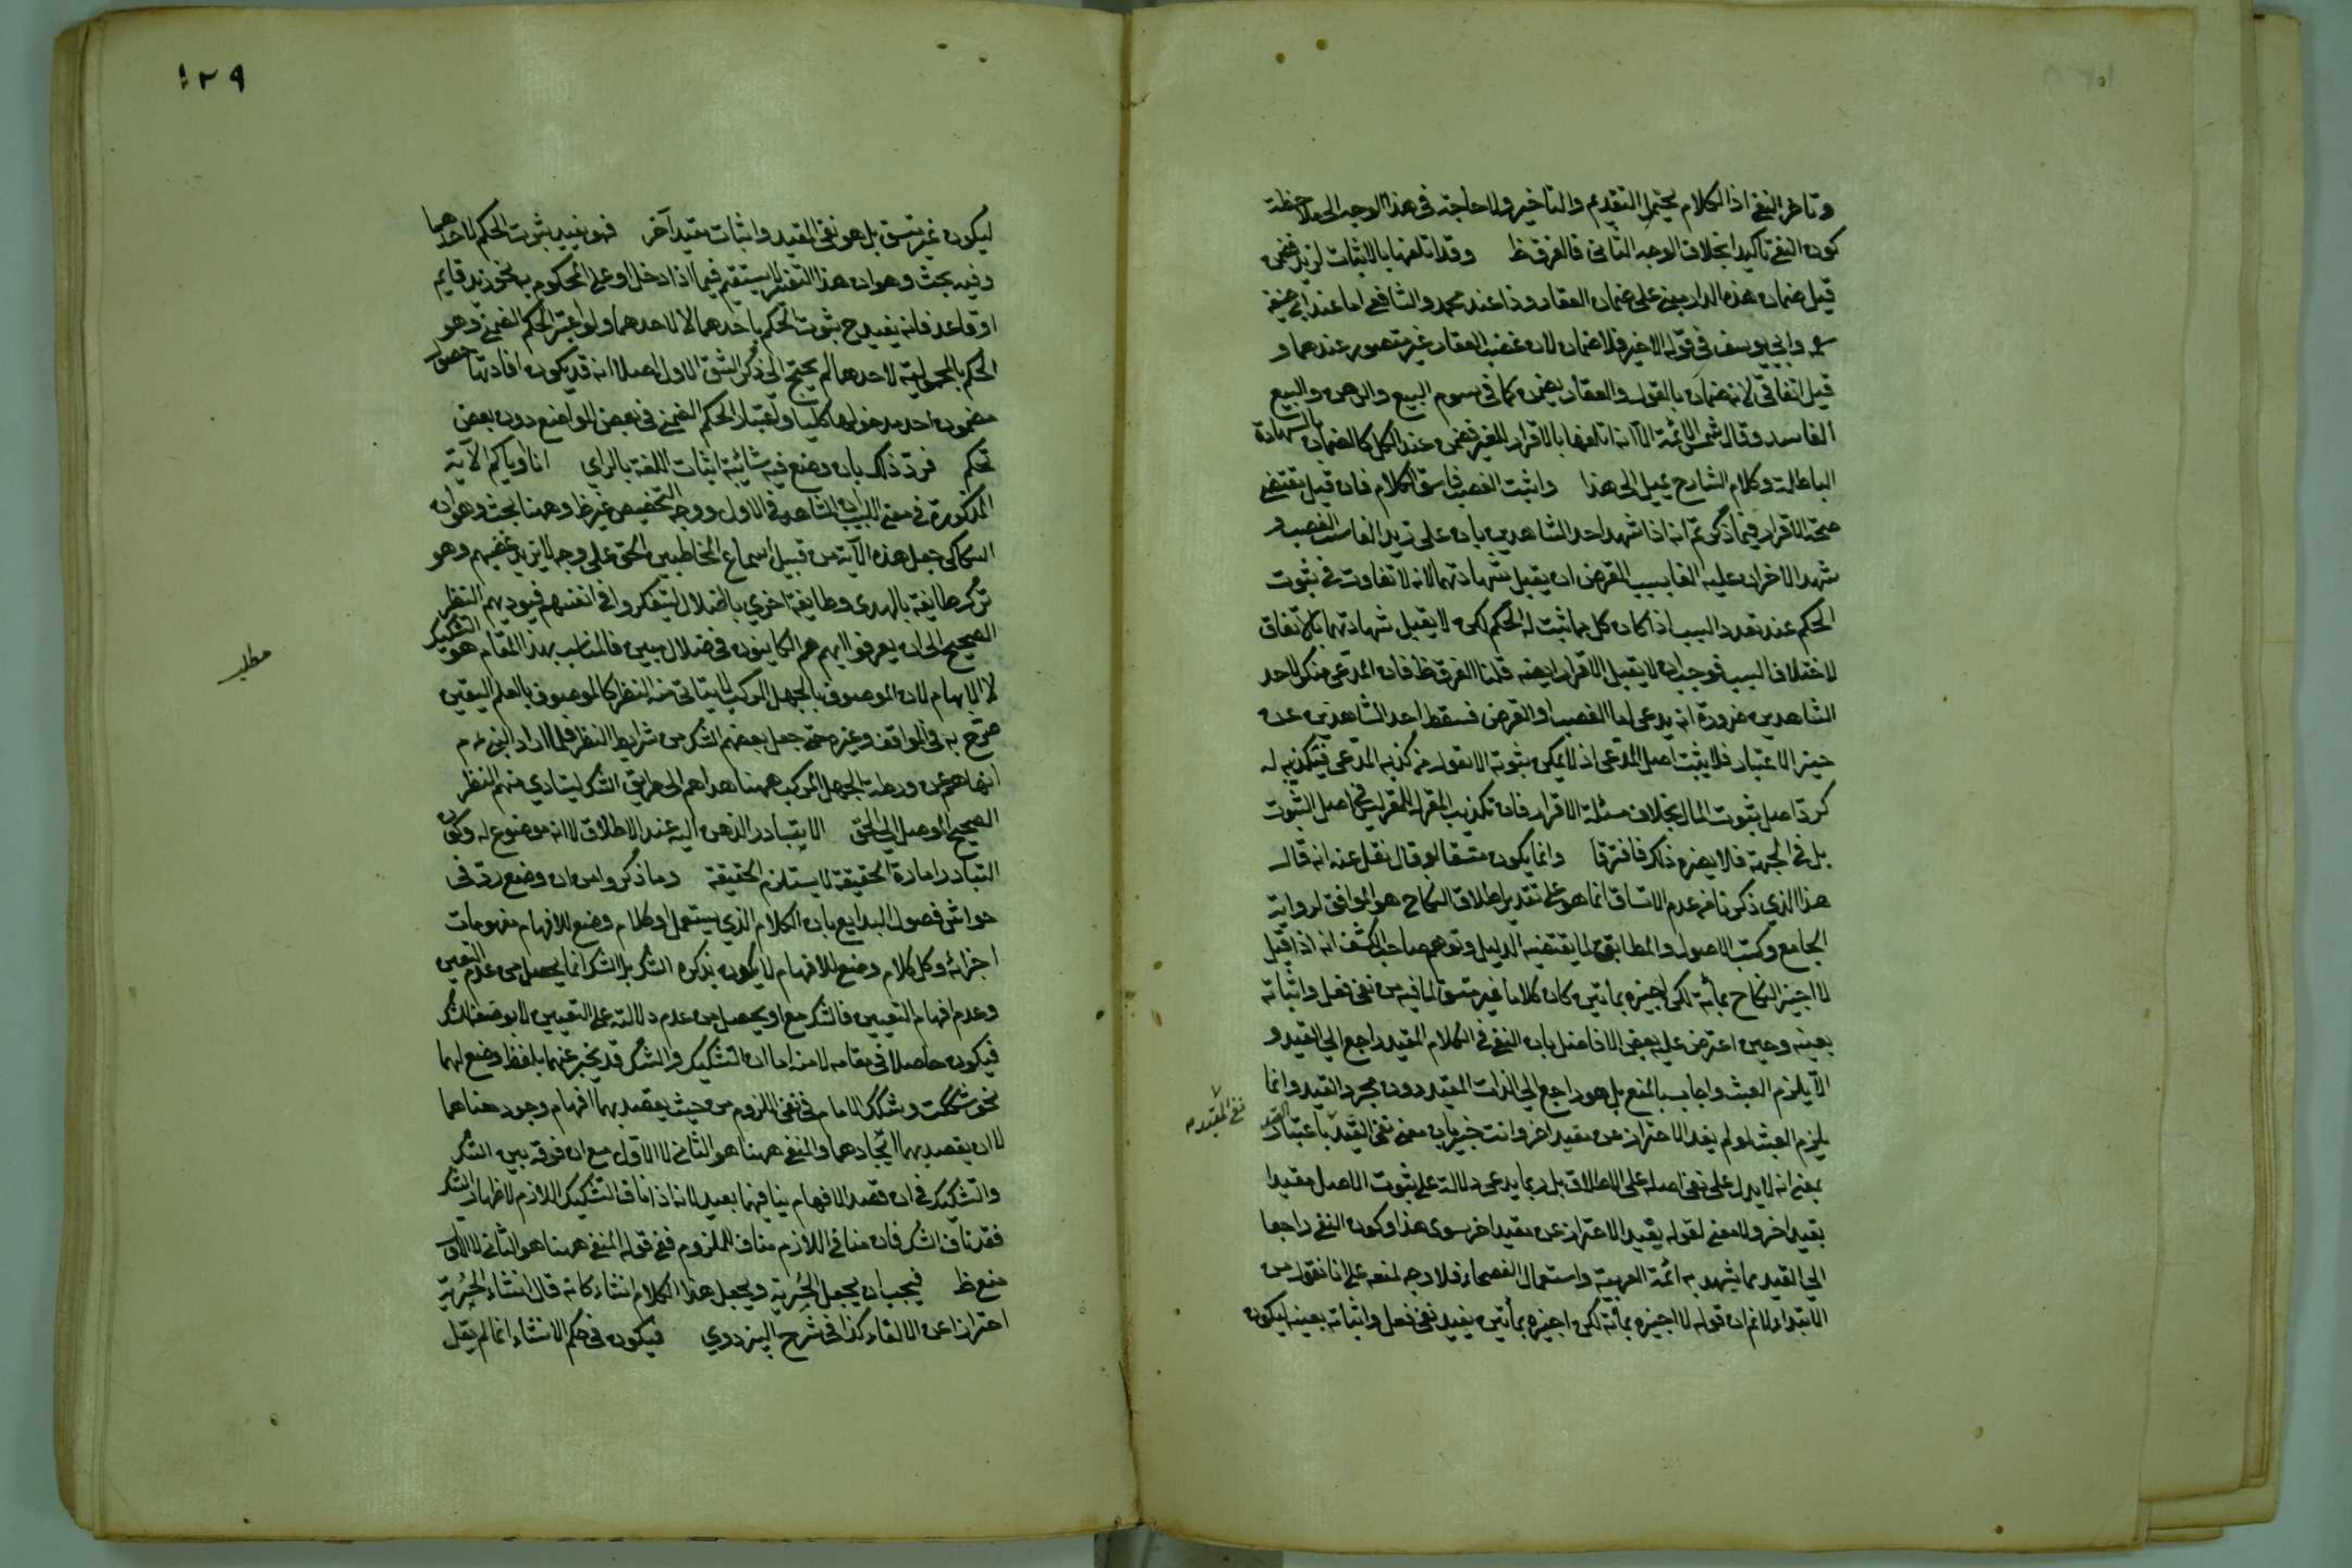 وتاخر النفي اذ الكلام يحتمل التقديم والتاخير ولا حاجة في هذا الوجه الى ملاحظة
كون النفي تاكيدا بخلاف الوجه الثاني فالفرق ظ وقد اتلفها بالاثبات لزيد ضمن
قيل ضمان هذه الدار مبني على ضمان العقار وذا عند محمد والشافعي اما عند ابي حنيفة
وابي يوسف في قوله الاخير فلا ضمان لان غصب العقار غير متصور عندهما و
قيل اتفاقي لانه ضمان بالقول والعقار يضمن كما في سوم البيع والرهن والبيع
الفاسد وقال شمس الائمة الا انه اتلفها بالاقرار للغير فضمن عند الكل كالضمان بالشهادة
الباطلة وكلام الشارح يميل الى هذا واثبت الغصب فاتسق الكلام فان قيل يقتضي
صحة الاقرار فيما ذكرتم انه اذا شهد احد الشاهدين بان على زيد الفا بسبب الغصب و
شهد الاخر ان عليه الفا بسبب القرض ان يقبل شهادتهما لانه لا تفاوت في ثبوت
الحكم عند تعدد السبب اذا كان كل مما ثبت له الحكم لكن لا يقبل شهادتهما بالاتفاق
لاختلاف السبب فوجب ان لا يقبل الاقرار ايضا قلنا الفرق ظ فان المدعي منكر لاحد
الشاهدين ضرورة انه يدعي اما الغصب او القرض فسقط احد الشاهدين عن
حيز الاعتبار فلا يثبت اصل المدعى اذ لا يمكن ثبوته الا بقول من كذبه المدعي فتكذيبه له
كرد اصل ثبوت المال بخلاف مسئلة الاقرار فان تكذيب المقر له للمقر ليس في اصل الثبوت
بل في الجهة فلا يضره ذلك فافترقا وانما يكون متسقا لو قال نقل عنه انه قال
هذا الذي ذكرنا من عدم الاتساق انما هو على تقدير اطلاق النكاح هو الموافق لرواية
الجامع وكتب الاصول والمطابق لما يقتضيه الدليل وتوهم صاحب الكشف انه اذا قيل
لا اجيز النكاح بمائة لكن اجيزه بمأتين كان كلاما غير متسق لما فيه من نفي فعل واثباته
بعينه وحين اعترض عليه بعض الافاضل بان النفي في الكلام المقيد راجع الى القيد و
الا يلزم العبث واجاب بالمنع بل هو راجع الى الذات المقيد دون مجرد القيد وانما
يلزم العبث لو لم يفد الاحتراز عن مقيد اخر وانت خبير بان معنى نفي القيد باعتبار القيد
بمعنى انه لا يدل على نفي اصله على الاطلاق بل ربما يدعى دلالته على ثبوت الاصل مقيدا
بقيد اخر ولا معنى لقوله يفيد الاحتراز عن مقيد اخر سوى هذا وكون النفي راجعا
الى القيد مما يشهد به ائمة العربية واستعمال الفصحاء فلا وجه لمنعه على انا نقول من
الابتداء لا نم ان قوله لا اجيزه بمائة لكن اجيزه بمأتين يفيد نفي فعل واثباته بعينه ليكون
نفي المقيد
١٢٩
ليكون غير متسق بل هو نفي المقيد واثبات مقيد آخر فهو يفيد ثبوت الحكم لاحدهما
وفيه بحث وهو ان هذا التفسير لا يستقيم فيما اذا دخل او على المحكوم به نحو زيد قايم
او قاعد فانه يفيد ح ثبوت الحكم باحدهما لا لاحدهما ولو اعتبر الحكم الضمني وهو
الحكم بالمحمولية لاحدهما لم يحتج الى ذكر الشق الاول اصلا انه قد يكون افادتها حصول
مضمون احد مدخولها كليا واعتبار الحكم الضمني في بعض المواضع دون بعض
تحكم فرد ذلك بان وضع فيه شائبة اثبات اللغة بالراي انا او اياكم الآية
المذكورة في مغني اللبيب ان الشاهد في الاول ووجه التخصيص غير ظ وههنا بحث وهو ان
السكاكي جعل هذه الآية من قبيل اسماع المخاطبين الحق على وجه لا يزيد غضبهم وهو
ترك طايفة بالهدى وطايفة اخرى بالضلال ليتفكروا في انفسهم فيوديهم النظر
الصحيح الى ان يعرفوا انهم هم الكاينون في ضلال مبين فالمناسب بهذا المقام هو التشكيك
لا الابهام لان الموصوف بالجهل المركب لا يتاتى منه النظر كالموصوف بالعلم اليقين
صرح به في المواقف وغيره حتى جعل بعضهم الشك من شرايط النظر فلما اراد النبي عم
انهاضهم عن ورطة الجهل المركب ههنا هداهم الى طريق الشك ليتادي منهم النظر
الصحيح الموصل الى الحق الا يتبادر الذهن اليه عند الاطلاق لا انه موضوع له وكون
التبادر امارة الحقيقة لا يستلزم الحقيقة وما ذكروا من ان وضع رد في
حواشي فصول البدايع بان الكلام الذي يستعمل او كلام وضع للافهام مفهومات
اجزائه وكل كلام وضع للافهام لا يكون بذكره الشك بل الشك انما يحصل من عدم التعين
وعدم افهام التعيين فالشك مع او يحصل من عدم دلالته على التعيين لا بوضعه للشك
فيكون حاصلا في مقامه لا منه اما ان التشكيك والشك قد يخبر عنهما بلفظ وضع لهما
نحو شككت وشكك الامام في نفي اللزوم من حيث يقصد بهما افهام وجود معناهما
لا ان يقصد بهما ايجادهما والمنفي ههنا هو الثاني لا الاول مع ان فرقه بين الشك
والتشكيك في ان قصد الافهام ينافيهما بعيد لانه اذا ناف التشكيك اللازم لاظهار الشك
فقد ناف الشك فان منافي اللازم مناف للملزوم ففي قوله المنفي ههنا هو الثاني لا الاول
منع ظ فيجب ان يجعل الخبرية ويجعل هذا الكلام انشاء كانه قال انشاء الحرية
احترازا عن الالغاء كذا في شرح البزدوي فيكون في حكم الانشاء انما لم يقل
مطلب